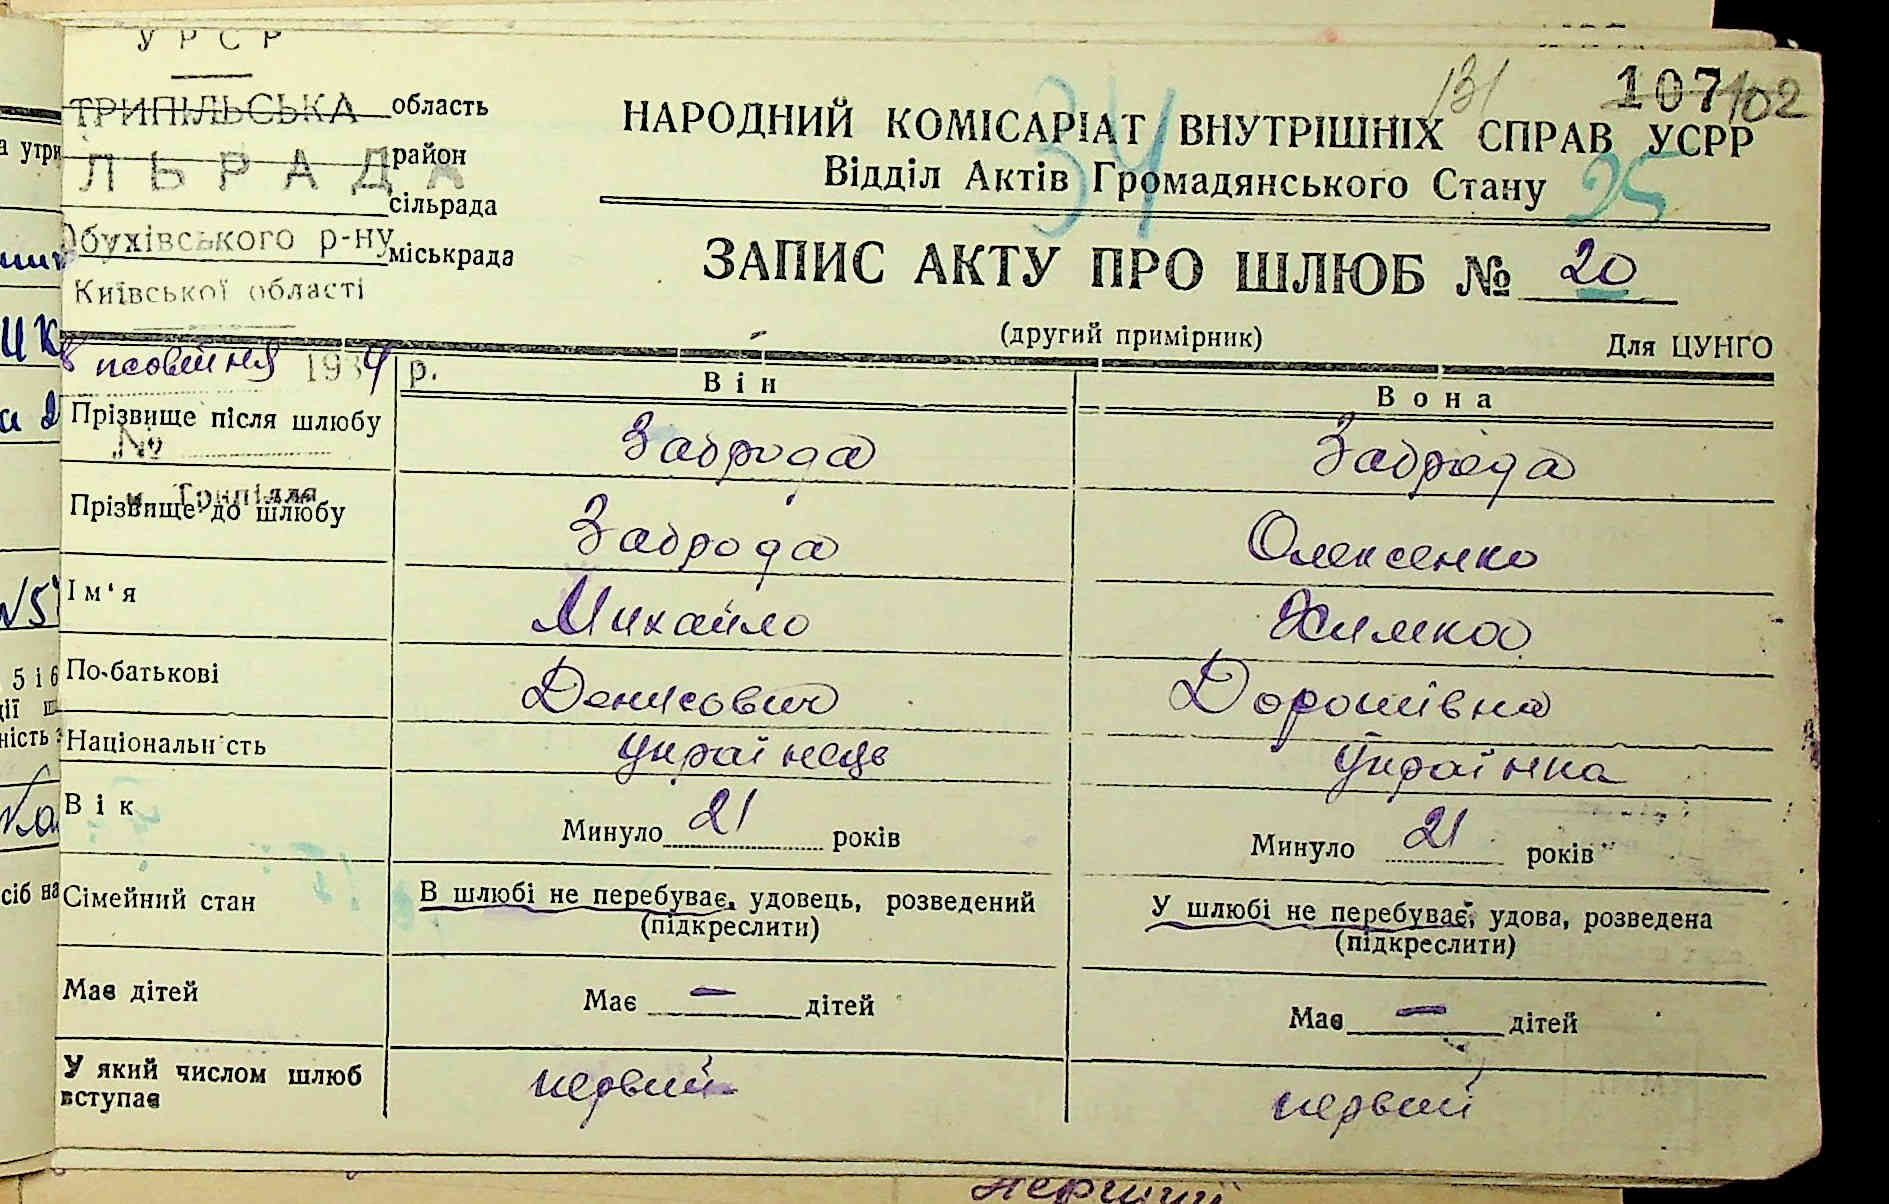 У Р С Р
ТРИПІЛЬСЬКА область
131
107 102
НАРОДНИЙ КОМІСАРІАТ ВНУТРІШНІХ СПРАВ УСРР
34
ЛЬРАДА район
Відділ Актів Громадянського Стану
25
сільрада
Обухівського р-ну міськрада
ЗАПИС АКТУ ПРО ШЛЮБ № 20
Київської області
(другий примірник) Для ЦУНГО
1934 р.
Він Вона
Прізвище після шлюбу Заброда Заброда
№
м. Трипілля
Прізвище до шлюбу Заброда Олексенко
Ім'я Михайло Химка
По-батькові Денисович Дорошівна
Національність Українець Українка
Вік Минуло 21 років Минуло 21 років
Сімейний стан В шлюбі не перебуває, удовець, розведений У шлюбі не перебуває, удова, розведена
(підкреслити) (підкреслити)
Має дітей Має — дітей Має — дітей
У який числом шлюб вступає первий первий